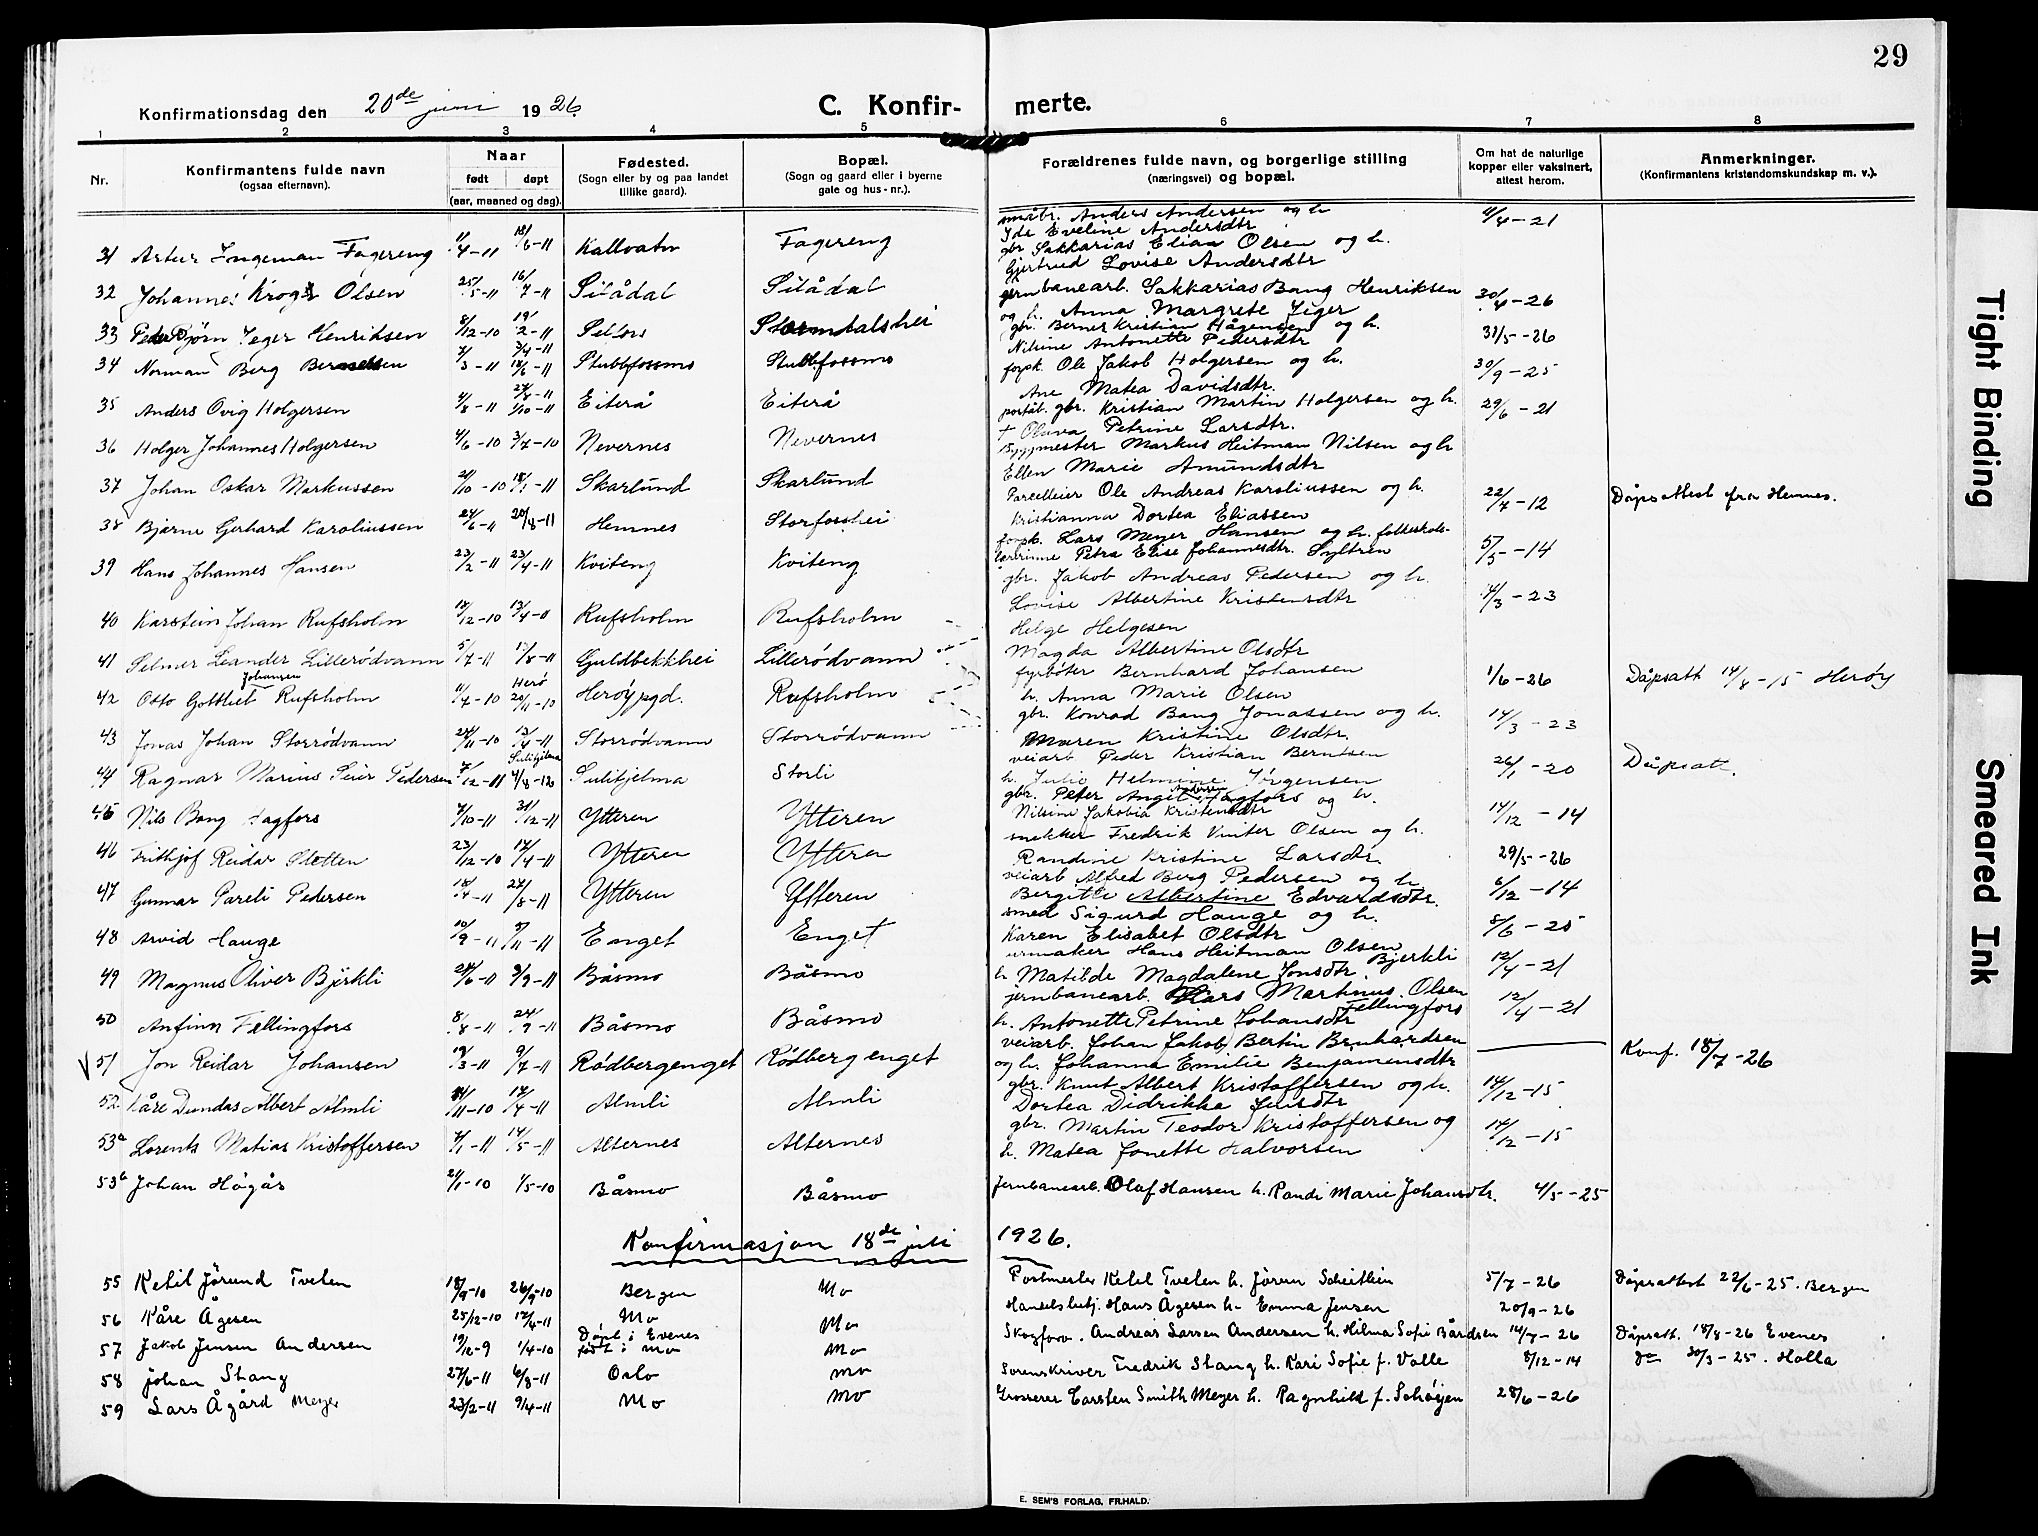 29
Konfirmationsdag den 20de juni 1926.
C. Konfir- merte.
1 2 3 4 5 6 7 8
Nr.
Konfirmantens fulde navn (ogsaa efternavn).
Naar født døpt (aar, maaned og dag).
Fødested. (Sogn eller by og paa landet tillike gaard).
Bopæl. (Sogn og gaard eller i byerne gate og hus-nr.).
Forældrenes fulde navn, og borgerlige stilling (næringsvei) og bopæl.
Om hat de naturlige kopper eller vaksinert, attest herom.
Anmerkninger. (Konfirmantens kristandomskundskap m. v.).
31 Artur Ingeman Fagereng 11/4-11 18/6-11 Fagereng småbr. Anders Andersen og h Ida Eveline Andersdtr 4/4-21
32 Johannes Olsen 25/5-11 16/7-11 Silådal Silådal gbr. Sakkarias Elias Olsen og h. Gjertrud Lovise Andersdtr
33 Peder Bjørn Jeger Henriksen 8/12-10 19/2-11 Selfors Stormdalshei jernbanearb. Sakkarias Bang Henriksen og h. Anna Margrete Jeger 30/4-26
34 Norman Berg 7/3-11 Stubbfossmo Stubbfossmo gbr. Berner Kristian Hågensen og h. Nilsine Antonette Pedersdtr 31/5-26
35 Anders Ovig Holgersen 4/8-11 1/10-11 Eiterå Eiterå forpk. Ole Jakob Holgersen og h. Ane Matea Davidsdtr. 30/9-25
36 Holger Johannes Holgersen 4/6-10 3/7-10 Nevernes Nevernes gbr. Kristian Martin Holgersen og h. + Olava Petrine Larsdtr. 29/6-21
37 Johan Oskar Markussen 21/10-10 18/1-11 Skarlund Skarlund Byggmester Markus Heitman Nilsen og h Ellen Marie Amundsdtr
38 Bjarne Gerhard Karoliussen 24/6-11 20/8-11 Hemnes Storforshei Parcelleier Ole Andreas Karoliussen og h. Kristianna Dortea Eliassen 22/7-12 Dåpsattest fra Hemnes.
39 Hans Johannes Hansen 23/2-11 23/4-11 Kviteng Kviteng forpk. Lars Meyer Hansen og h. folkeskole- lærerinne Petra Elise Johannesdtr. Syltren 5/5-14
40 Karstein Johan Rufsholm 18/12-10 13/4-11 Rufsholm Rufsholm gbr. Jakob Andreas Pedersen og h. Lovise Albertine Kristensdtr 14/3-23
41 Selmer Leander Lillerødvann 5/7-11 Guldbekkhei Lillerødvann Helge Helgesen Magda Albertine Olsdtr
42 Otto Gottliet Johansen Rufsholm 11/4-10 Herø 20/11-10 Herøy pgd. Rufsholm fyrbøter Bernhard Johansen h. Anna Marie Olsen 1/6-26 Dåpsatt 14/8-15 Herøy
43 Jonas Johan Storrødvann 24/11-10 13/4-11 Storrødvann Storrødvann gbr. Konrad Bang Jonassen og h. Maren Kristine Olsdtr. 14/3-23
44 Ragnar Marius Seier Pedersen 7/12-11 Sulitjelma 4/8-12 Sulitjelma Storli veiarb Peder Kristian Berntsen h. Julie Helmine Jørgensen 26/1-20 Dåpsatt.
45 Nils Bang Hagfors 4/10-11 31/12-11 Ytteren Ytteren gbr. Peter Angel Andersen Hagfors og h. Nilsine Jakobia Kristensdtr 14/12-14
46 Frithjof Reidar Sletten 23/12-10 17/4-11 Ytteren Ytteren snekker Fredrik Vinter Olsen og h. Randine Kristine Larsdtr. 29/5-26
47 Gunnar Pareli Pedersen 18/4-11 27/8-11 Ytteren Ytteren veiarb Alfred Berg Pedersen og h Bergitte Albertine Edvardsdtr. 6/12-14
48 Arvid Hauge 10/9-11 5/11-11 Enget Enget smed Sigurd Hauge og h. Karen Elisabet Olsdtr 8/6-25
49 Magnus Oliver Bjerkli 24/6-11 3/9-11 Båsmo Båsmo urmaker Hans Heitman Olsen Bjerkli h Matilde Magdalene Jonsdtr. 12/4-21
50 Anfinn Fellingfors 8/8-11 24/9-11 Båsmo Båsmo jernbanearb. Lars Martinus Olsen Fellingfors h. Antonette Petrine Johansdtr 12/4-21
V 51 Jon Reidar Johansen 19/3-11 9/7-11 Rødbergenget Rødbergenget veiarb. Johan Jakob Bertin Bernhardsen og h. Johanna Emilie Benjaminsdtr Konf. 18/7-26
52 Kåre Dundas Albert Almli 11/11-10 17/4-11 Almli Almli gbr. Knut Albert Kristoffersen og h. Dortea Didrikke Jensdtr 14/12-15
53a Lorents Matias Kristoffersen 7/1-11 14/5-11 Alternes Alternes gbr. Martin Teodor Kristoffersen og h. Matea Jonette Halvorsen 14/12-15
53b Johan Høgås 21/1-10 1/5-10 Båsmo Båsmo Jernbanearb. Olaf Hansen h. Randi Marie Johansdtr. 4/5-25
Konfirmasjon 18de juli 1926.
55 Ketil Jørund Tvelen 18/9-10 26/9-10 Bergen Mo Postmester Ketil Tvelen h. Jørun 5/7-26 Dåpsattest 22/6-25. Bergen
56 Kåre Ågesen 25/12-10 17/4-11 Mo Mo Handelsbetj. Hans Ågesen h. Emma Jensen 20/9-26
57 Jakob Jensen Andersen 19/12-9 1/4-10 Døpt i Evenes født i Mo Mo Skogforv. Andreas Larsen Andersen h. Hilma Sofie Bårdsen 14/7-26 Dåpsatt. 18/8-26 Evenes
58 Johan Stang 27/6-11 6/8-11 Oslo Mo Sorenskriver Fredrik Stang h. Kari Sofie f. Valle 8/12-14 do 30/3-25. Holla
59 Lars Ågård Meyer 23/2-11 9/4-11 Mo Mo Grosserer Carsten Smith Meyer h. Ragnhild f. 28/6-26
E. SEM'S FORLAG, FR.HALD.
Tight Binding
Smeared Ink